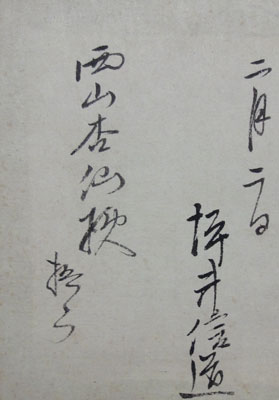 二月二日
坪井信道
西山杏仙様